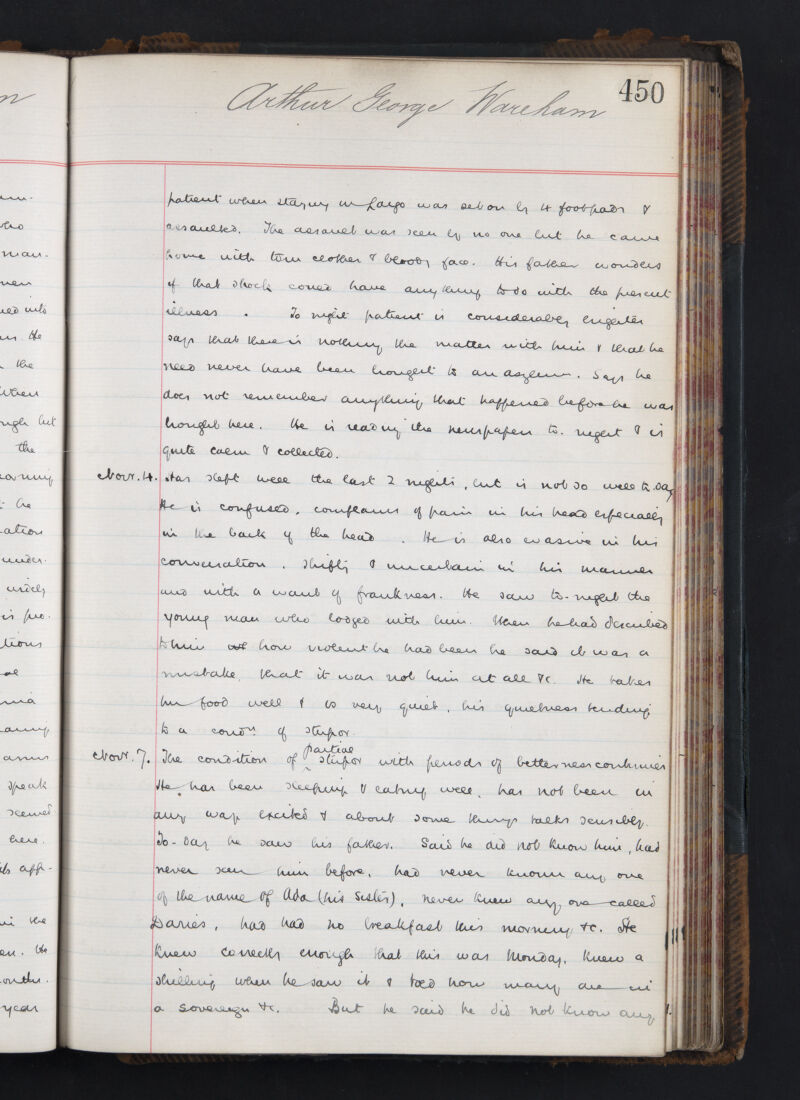 Arthur George Wareham
450
patient when staying in Largo was set on by 4 footpads &
assaulted. The assault was seen by no one but he came
home with torn clothes & bloody face. His father wonders
if that shock could have anything to do with the present
illness. To night patient is considerably brighter
says that there is nothing the matter with him & that he
need never have been brought to an asylum. Says he
does not remember anything that happened before he was
brought here. He is reading the newspapers to-night & is
quite calm & collected.
Novr. 4. Has slept well the last 2 nights, but is not so well to day
He is confused, complains of pain in his head especially
in the back of the head. He is also evasive in his
conversation, shifty & uncertain in his manner
and with a want of frankness. He saw to-night the
young man who lodged with him. When he had described
to him how violent he had been he said it was a
mistake, that it was not him at all &c. He takes
his food well & is very quiet, his quietness tending
to a condn. of stupor.
Novr. 7. The condition of partial stupor with periods of betterness continues
He has been sleeping & eating well, has not been in
any way excited & about some things talks sensibly.
To-day he saw his father. Said he did not know him, had
never seen him before, had never known any one
of the name of Ada (his sister), never knew any one called
Davies, had had no breakfast this morning &c. He
knew correctly enough that this was Monday, knew a
shilling when he saw it & told how many are in
a sovereign &c. But he said he did not know any